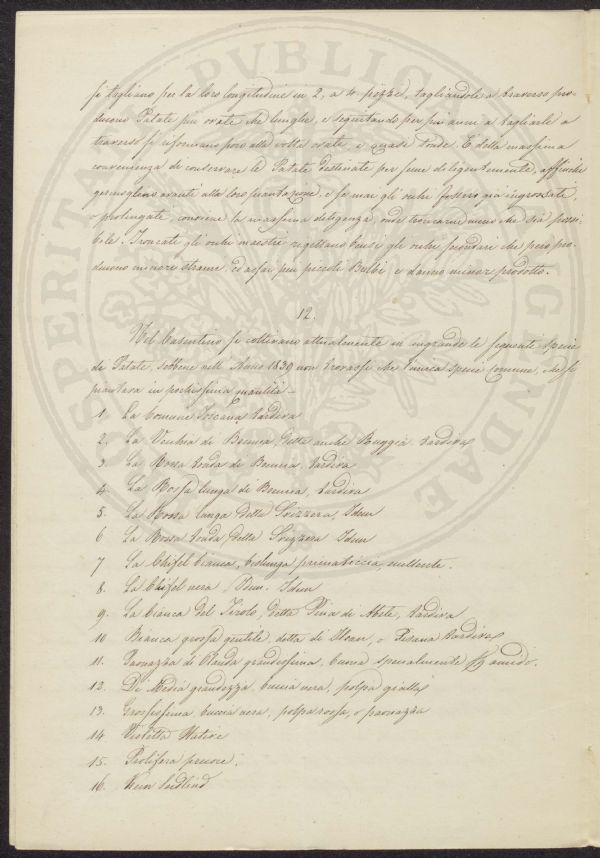 si tagliano per la loro longitudine in 2, a 4. pezzi, tagliandole a traverso pro-
ducono Patate più ovate che lunghe, e seguitando per più anni a tagliarle a
traverso si riformano poro alle volte ovate, e quasi tonde. È della massima
convenienza di conservare le Patate destinate per seme diligentemente, affinché
germoglino avanti alla loro piantazione, e se mai gli occhi fossero già ingrossati,
o prolungati, conviene la massima diligenza, onde troncarne meno che sia possi-
bile. Troncati gli occhi maestri rigettano bensì gli occhi secondari che però pro-
ducono minore strame, ed assai più piccoli Bulbi, e danno minor prodotto.
12.
Nel Casentino si coltivano attualmente in ingrande le seguenti specie
di Patate, sebbene nell'Anno 1839 non trovassi che l'unica specie Comune, che si
piantava in pochissima quantità.
1. La Comune Toscana tardiva
2. La Vecchia di Boemia, detta anche Ruggia tardiva
3. La Rossa tonda di Boemia, tardiva
4. La Rossa lunga di Boemia, tardiva
5. La Rossa lunga della Svizzera, Idem
6. La Rossa tonda della Svizzera Idem
7. La Chifel bianca, bislunga primaticcia,
8. La Chifel nera, Idem. Idem
9. La bianca del Tirolo, detta Pina di Abete, tardiva
10 Bianca grossa gentile, detta di Roan, o Pesana tardiva
11. Paonazza di Olanda grandissima, buona specialmente p amido.
12. Di Media grandezza, buccia nera, polpa gialla
13. Grossissima buccia nera, polpa rossa, o paonazza
14 Violetta Native
15. Prolifera precoce.
16. Keen Seedlind
PROSPERITATI PUBLICAE AUGENDAE